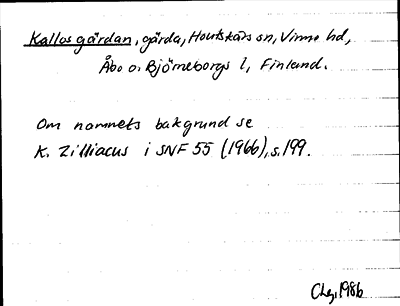 Kallas gårdan, gärda, Houtskärs sn, Vinmo hd,
Åbo o. Björneborgs l, Finland.
Om namnets bakgrund se
K. Zilliacus i SNF 55 (1966), s. 199.
1986